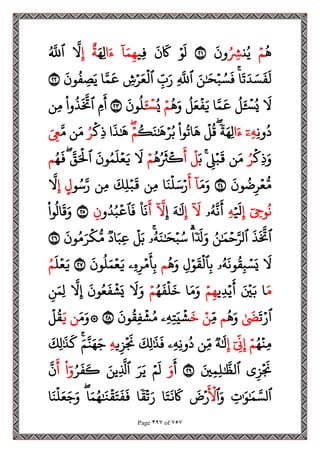 هُمۡ يُنشِرُونَ ٢١ لَوۡ كَانَ فِيهِمَآ ءَالِهَةٌ إِلَّا ٱللَّهُ
لَفَسَدَتَاۚ فَسُبۡحَٰنَ ٱللَّهِ رَبِّ ٱلۡعَرۡشِ عَمَّا يَصِفُونَ ٢٢
لَا يُسۡـَٔلُ عَمَّا يَفۡعَلُ وَهُمۡ يُسۡـَٔلُونَ ٢٣ أَمِ ٱتَّخَذُواْ مِن
دُونِهِۦٓ ءَالِهَةٗۖ قُلۡ هَاتُواْ بُرۡهَٰنَكُمۡۖ هَٰذَا ذِكۡرُ مَن مَّعِيَ
وَذِكۡرُ مَن قَبۡلِيۚ بَلۡ أَكۡثَرُهُمۡ لَا يَعۡلَمُونَ ٱلۡحَقَّۖ فَهُم
مُّعۡرِضُونَ ٢٤ وَمَآ أَرۡسَلۡنَا مِن قَبۡلِكَ مِن رَّسُولٍ إِلَّا
نُوحِيٓ إِلَيۡهِ أَنَّهُۥ لَآ إِلَٰهَ إِلَّآ أَنَا۠ فَٱعۡبُدُونِ ٢٥ وَقَالُواْ
ٱتَّخَذَ ٱلرَّحۡمَٰنُ وَلَدٗاۗ سُبۡحَٰنَهُۥۚ بَلۡ عِبَادٞ مُّكۡرَمُونَ ٢٦
لَا يَسۡبِقُونَهُۥ بِٱلۡقَوۡلِ وَهُم بِأَمۡرِهِۦ يَعۡمَلُونَ ٢٧ يَعۡلَمُ
مَا بَيۡنَ أَيۡدِيهِمۡ وَمَا خَلۡفَهُمۡ وَلَا يَشۡفَعُونَ إِلَّا لِمَنِ
ٱرۡتَضَىٰ وَهُم مِّنۡ خَشۡيَتِهِۦ مُشۡفِقُونَ ٢٨ ۞وَمَن يَقُلۡ
مِنۡهُمۡ إِنِّيٓ إِلَٰهٞ مِّن دُونِهِۦ فَذَٰلِكَ نَجۡزِيهِ جَهَنَّمَۚ كَذَٰلِكَ
نَجۡزِي ٱلظَّٰلِمِينَ ٢٩ أَوَلَمۡ يَرَ ٱلَّذِينَ كَفَرُوٓاْ أَنَّ
ٱلسَّمَٰوَٰتِ وَٱلۡأَرۡضَ كَانَتَا رَتۡقٗا فَفَتَقۡنَٰهُمَاۖ وَجَعَلۡنَا
Page ٤٩٧ of ٧٥٧